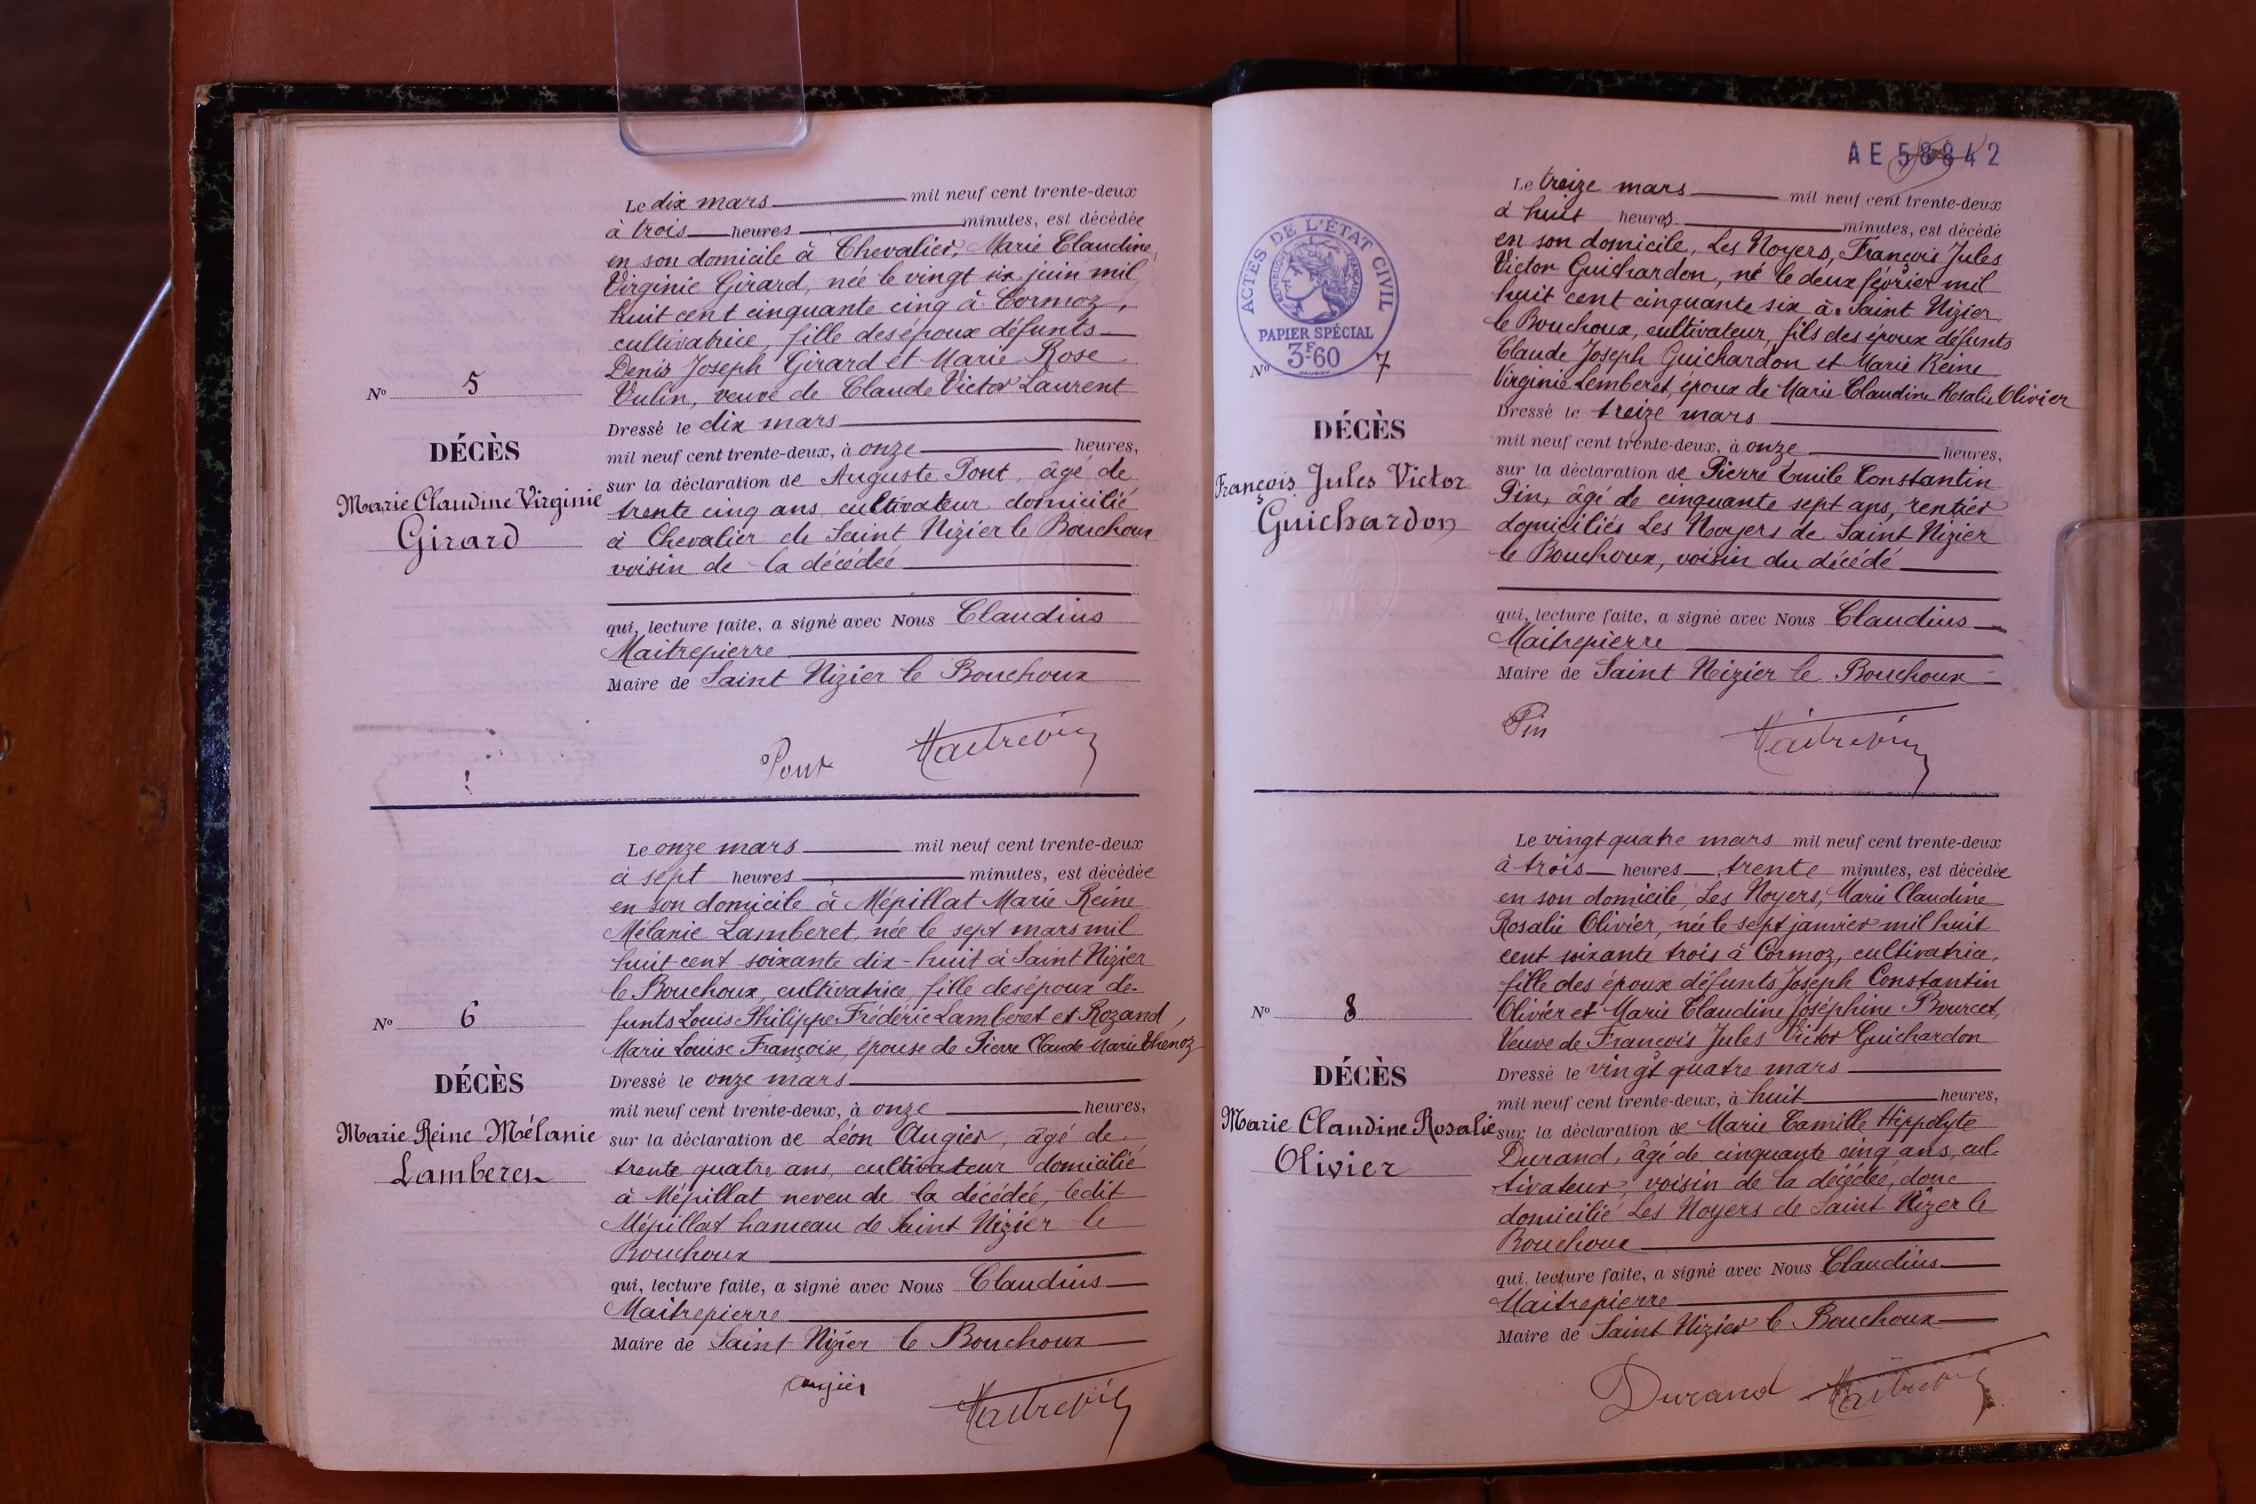 Le dix mars mil neuf cent trente-deux
à trois heures minutes, est décédée
en son domicile à Chevalier, Marie Claudine
Virginie Girard, née le vingt six juin mil
huit cent cinquante cinq à Cormoz,
cultivatrice, fille des époux défunts
Denis Joseph Girard et Marie Rose
Vulin, veuve de Claude Victor Laurent
Dressé le dix mars
mil neuf cent trente-deux, à onze heures,
sur la déclaration de Auguste Pont, âgé de
trente cinq ans cultivateur domicilié
à Chevalier de Saint Nizier le Bouchoux
voisin de la décédée
qui, lecture faite, a signé avec Nous Claudius
Maitrepierre
Maire de Saint Nizier le Bouchoux
Nº 5
DÉCÈS
Marie Claudine Virginie
Girard
Pont
Le onze mars mil neuf cent trente-deux
à sept heures minutes, est décédée
en son domicile à Mépillat Marie Reine
Mélanie Lamberet, née le sept mars mil
huit cent soixante dix-huit à Saint Nizier
le Bouchoux, cultivatrice, fille des époux dé-
funts Louis Philippe Fréderic Lamberet et Rozand,
Marie Louise Françoise, épouse de Pierre Claude Marie Thénoz
Dressé le onze mars
mil neuf cent trente-deux, à onze heures,
sur la déclaration de Léon Augier, âgé de
trente quatre ans, cultivateur domicilié
à Mépillat neveu de la décédée, ledit
Mépillat hameau de Saint Nizier le
Bouchoux
qui, lecture faite, a signé avec Nous Claudius
Maitrepierre
Maire de Saint Nizier le Bouchoux
Nº 6
DÉCÈS
Marie Reine Mélanie
Lamberet
Augier
AE 58842
ACTES DE L'ÉTAT CIVIL
PAPIER SPÉCIAL
3F60
Le treize mars mil neuf cent trente-deux
à huit heures minutes, est décédé
en son domicile, Les Noyers, François Jules
Victor Guichardon, né le deux février mil
huit cent cinquante six à Saint Nizier
le Bouchoux, cultivateur, fils des époux défunts
Claude Joseph Guichardon et Marie Reine
Virginie Lemberet, époux de Marie Claudine Rosalie Olivier
Dressé le treize mars
mil neuf cent trente-deux, à onze heures,
sur la déclaration de Pierre Emile Constantin
Pin, âgé de cinquante sept ans, rentier
domiciliés Les Noyers de Saint Nizier
le Bouchoux, voisin du décédé
qui, lecture faite, a signé avec Nous Claudius
Maitrepierre
Maire de Saint Neizier le Bouchoux
Nº 7
DÉCÈS
François Jules Victor
Guichardon
Pin
Le vingt quatre mars mil neuf cent trente-deux
à trois heures trente minutes, est décédée
en son domicile, Les Noyers, Marie Claudine
Rosalie Olivier, née le sept janvier mil huit
cent soixante trois à Cormoz, cultivatrice,
fille des époux défunts Joseph Constantin
Olivier et Marie Claudine Joséphine Bourcet,
Veuve de François Jules Victor Guichardon
Dressé le vingt quatre mars
mil neuf cent trente-deux, à huit heures,
sur la déclaration de Marie Camille Hippolyte
Durand, âgé de cinquante cinq ans, cul-
tivateur, voisin de la décédée, donc
domicilié Les Noyers de Saint Nizer le
Bouchoux
qui, lecture faite, a signé avec Nous Claudius
Maitrepierre
Maire de Saint Nizier le Bouchoux
Nº 8
DÉCÈS
Marie Claudine Rosalie
Olivier
Durand